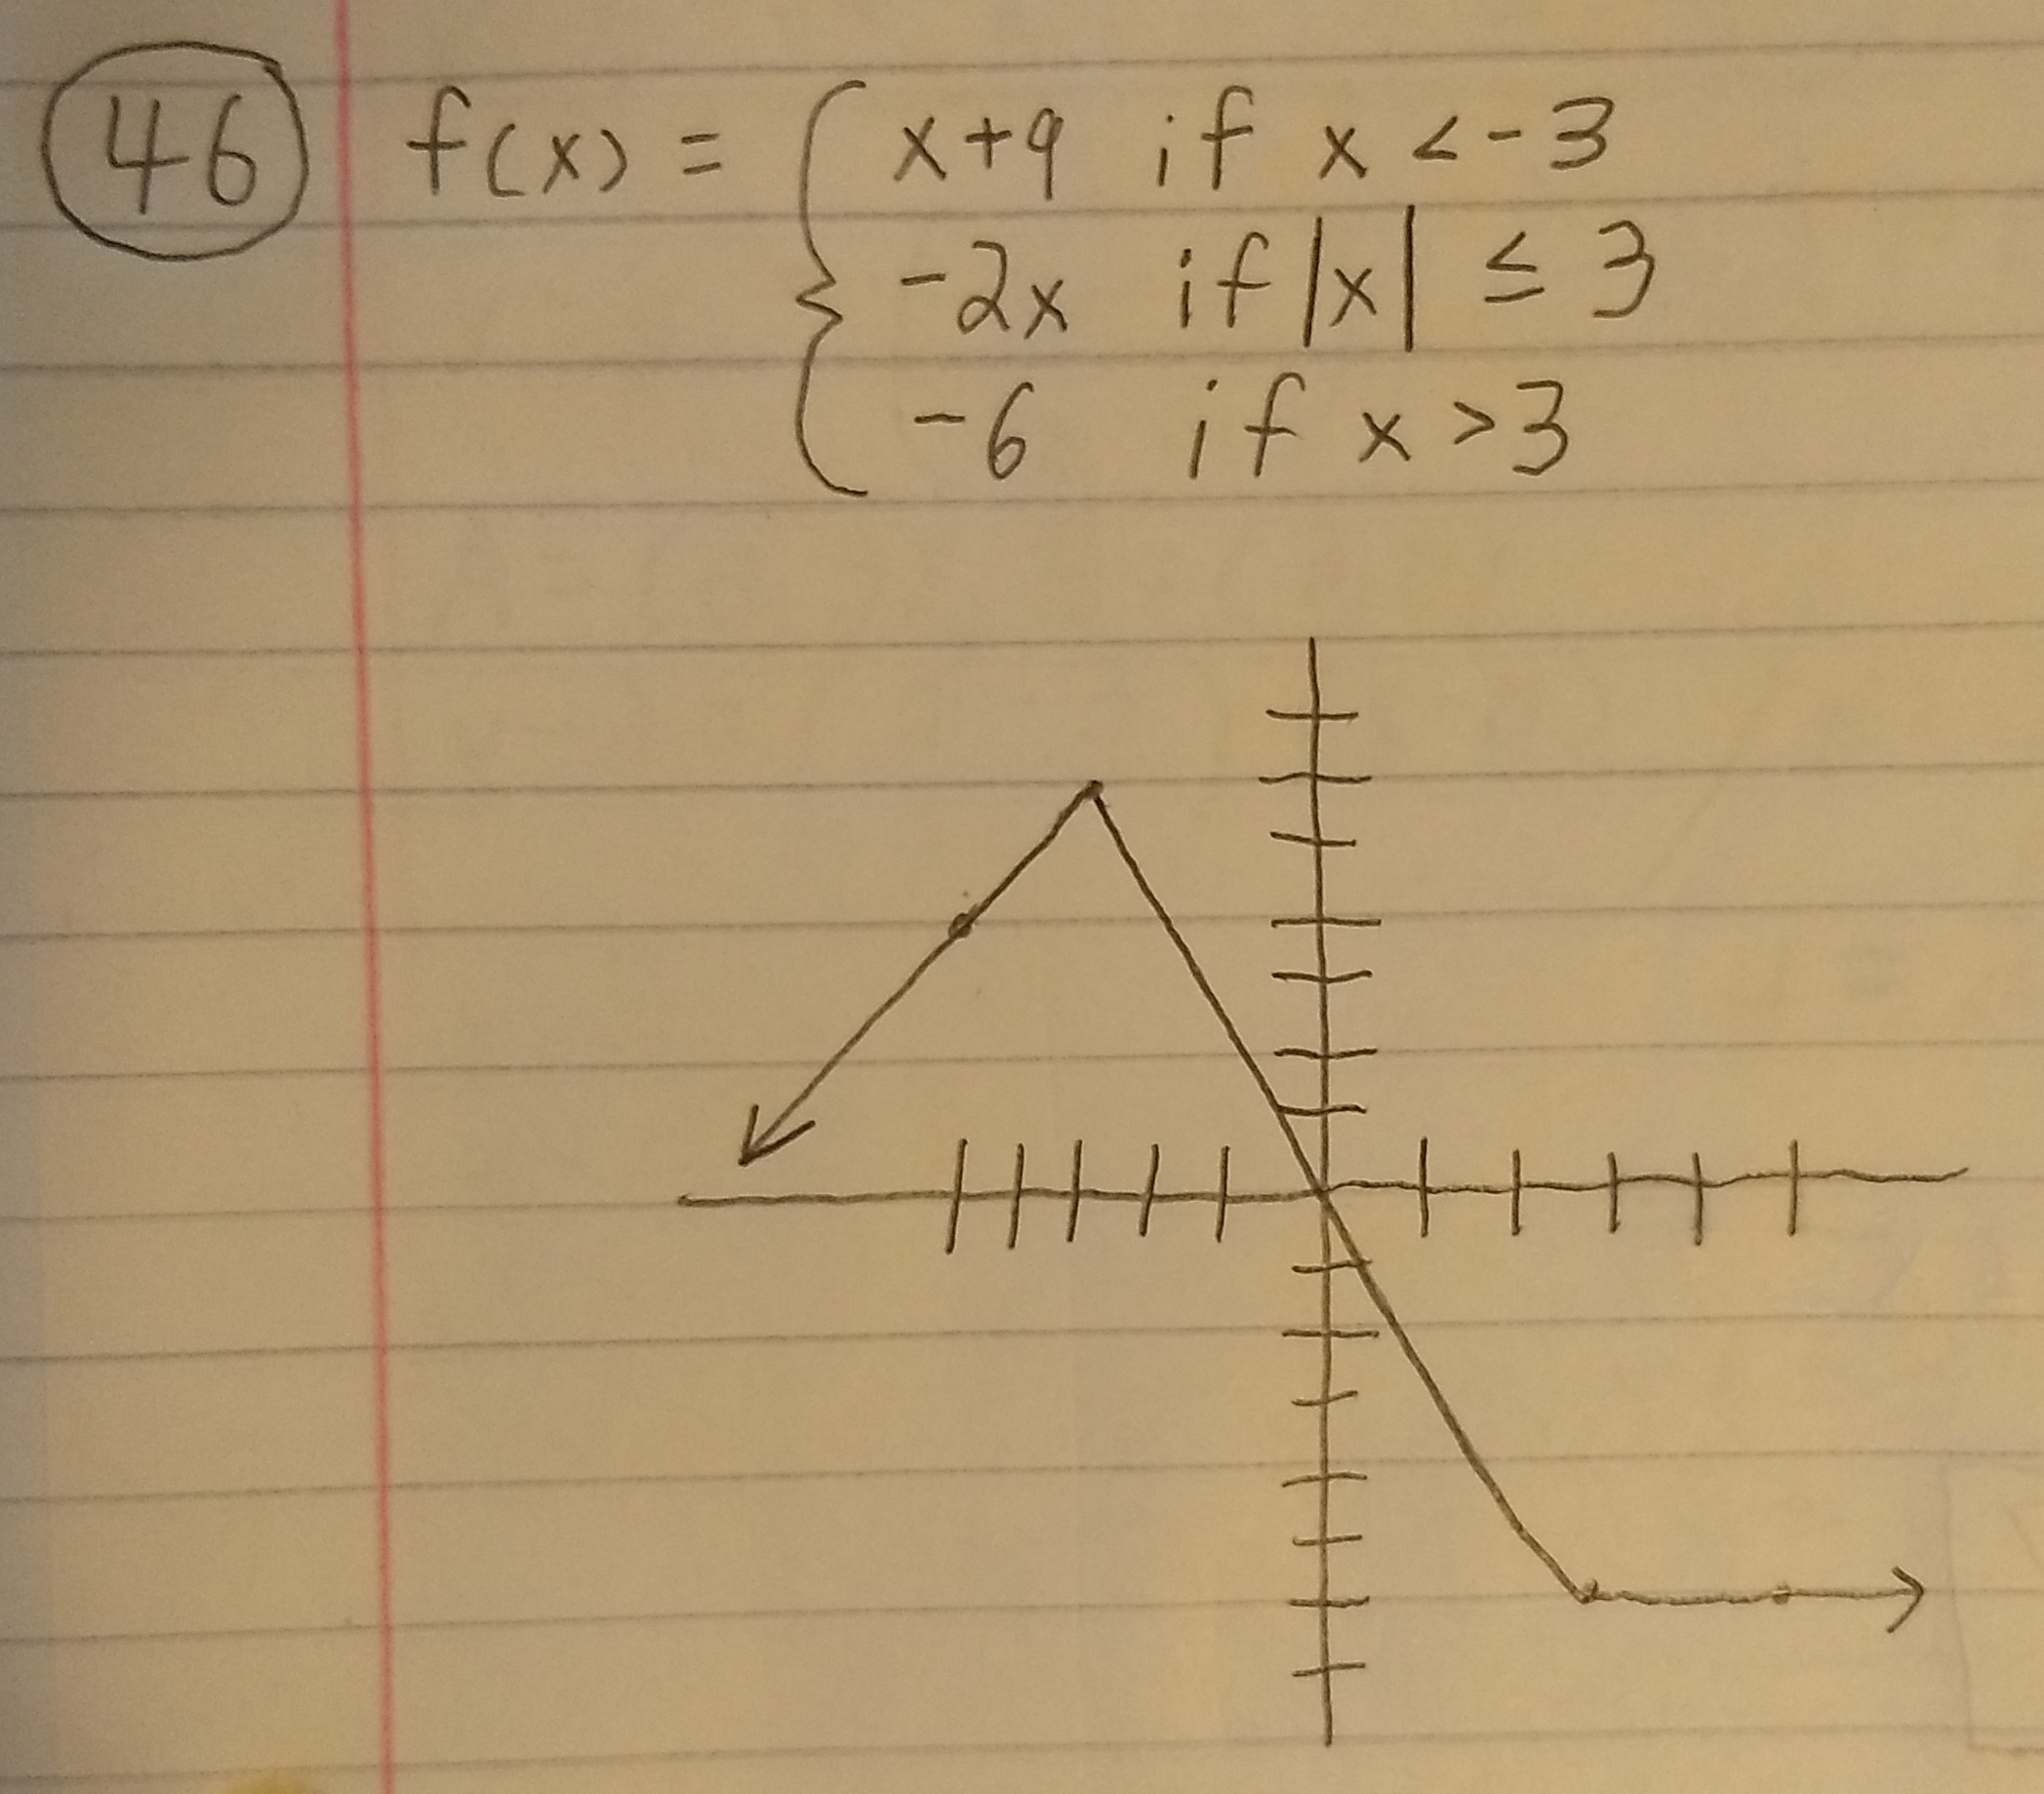 46 f(x) = { x+9 if x < -3
-2x if |x| ≤ 3
-6 if x > 3